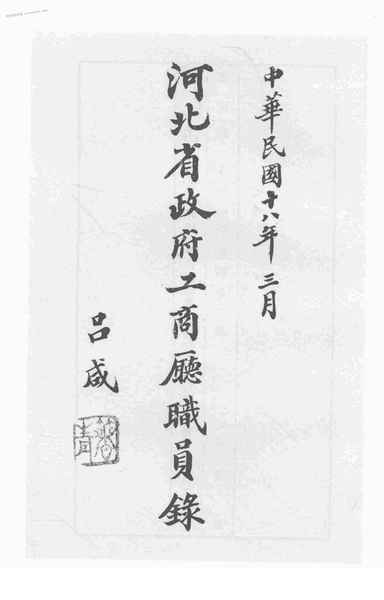 中華民國十八年三月
河北省政府工商廳職員錄
呂咸